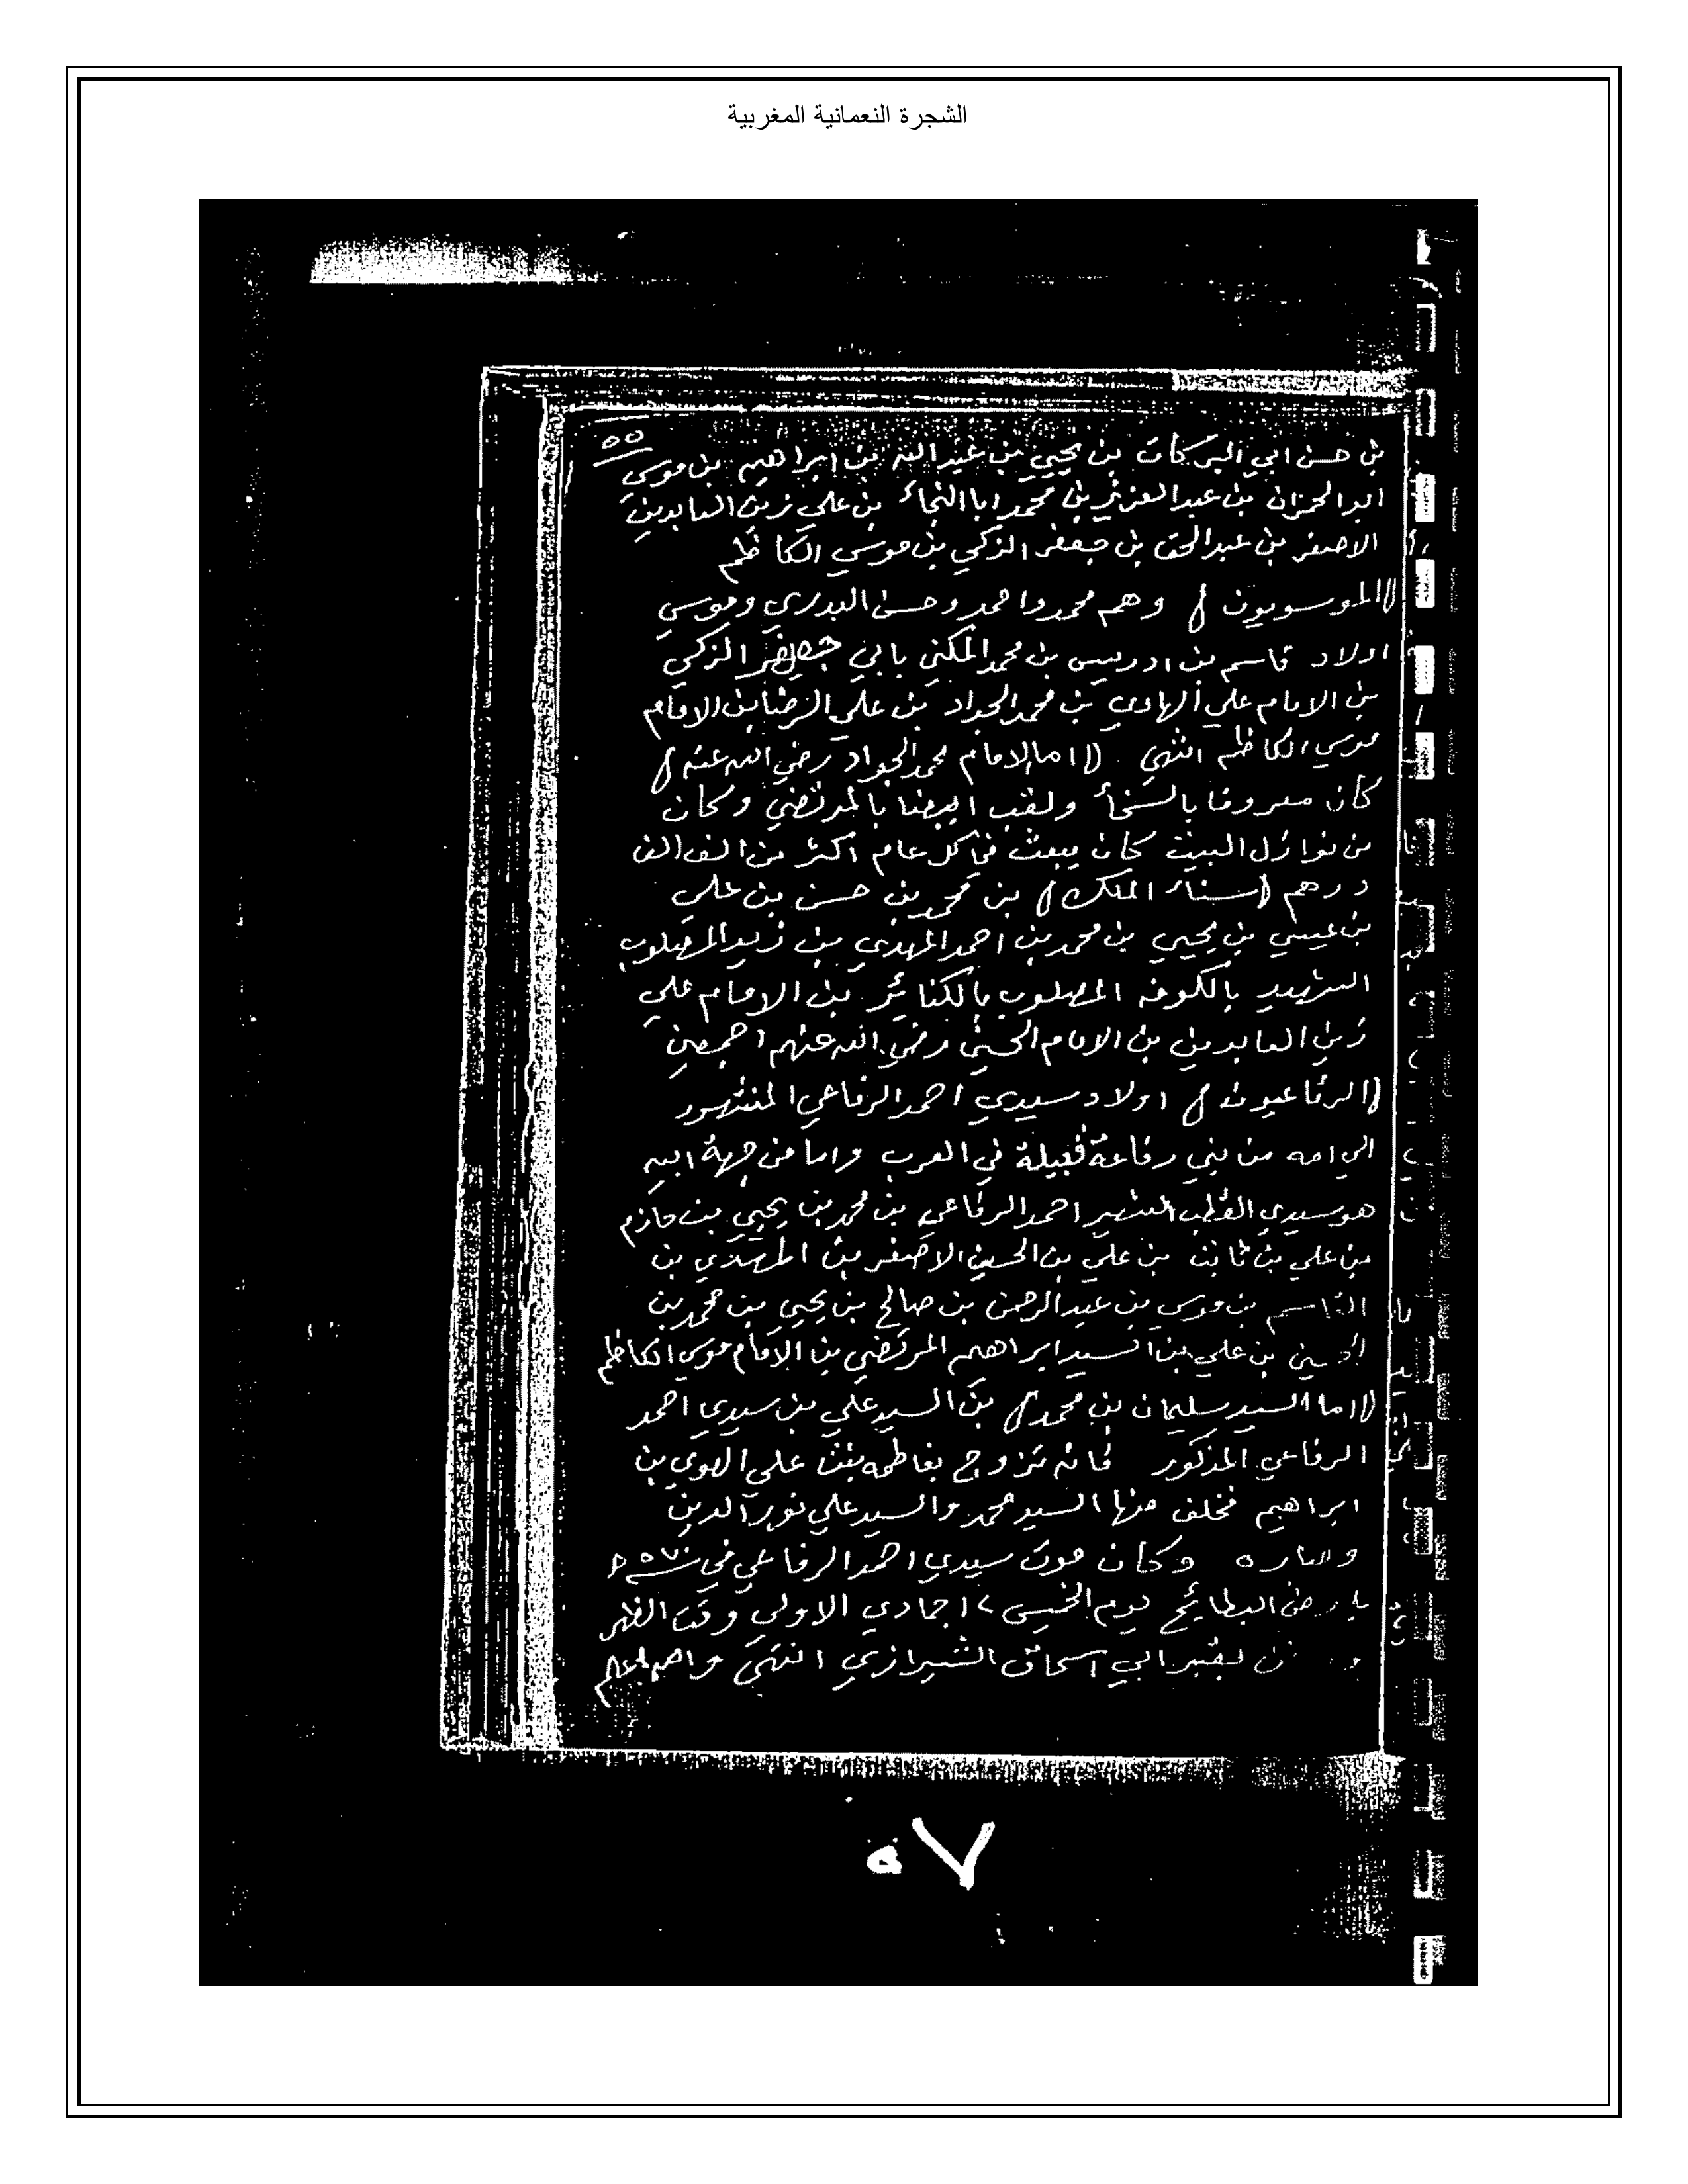 الشجرة النعمانية المغربية
٥٥
بن حسن ابي البركات بن يحيي بن عبد الله بن ابراهيم بن موسى
ابو الحمزان بن عبد العزيز بن محمد ابا النجاء بن علي زين العابدين
الاصغر بن عبد الحق بن جعفر الزكي بن موسي الكاظم
(الموسويون) وهم محمد واحمد وحسن البدري وموسي
اولاد قاسم بن ادريس بن محمد المكني بابي جعفر الزكي
بن الامام علي الهادي بن محمد الجواد بن علي الرضا بن الامام
موسي الكاظم انتهي (اما الامام محمد الجواد رضي الله عنه)
كان معروفا بالسخأ ولقب ايضا بالمرتضي وكان
من نوازل البيت كان يبعث في كل عام اكثر من الف الف
درهم (سناء الملك) بن محمد بن حسن بن علي
بن عيسي بن يحيي بن محمد بن احمد المهدي بن زيد المصلوب
الشهيد بالكوفه المصلوب بالكنائر بن الامام علي
زين العابدين بن الامام الحسين رضي الله عنهم اجمعين
(الرفاعيون) اولاد سيدي احمد الرفاعي المشهور
الي امه من بني رفاعة قبيلة في العرب واما من جهة ابيه
هو سيدي القطب الشهير احمد الرفاعي بن محمد بن يحيي بن حازم
بن علي بن ثابت بن علي بن الحسين الاصغر بن المهدي بن
القاسم بن موسي بن عبد الرحمن بن صالح بن يحيي بن محمد بن
الحسين بن علي بن السيد ابراهيم المرتضي بن الامام موسي الكاظم
(اما السيد سليمان بن محمد) بن السيد علي بن سيدي احمد
الرفاعي المذكور فانه تزوج بفاطمه بنت علي الهوي بن
ابراهيم فخلف منها السيد محمد والسيد علي نور الدين
وكان موت سيدي احمد الرفاعي في ٥٧٠
البطائح يوم الخميس ١٢ جمادي الاولي وقت الظهر
بقبر ابي اسحاق الشيرازي انتهى
٥٧